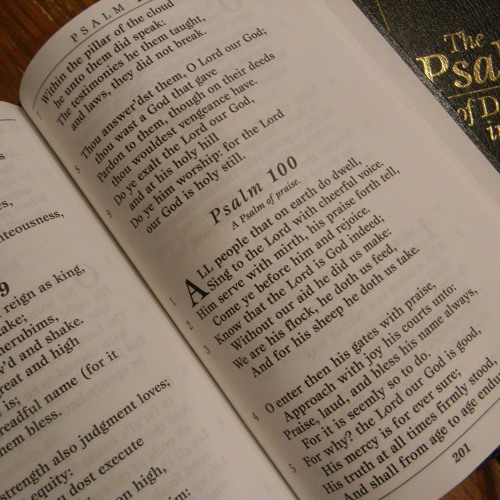 s
s,
ghteousness,
9
reign as king,
ake;
herubims,
y'd and shake.
reat and high
is;
readful name (for it
hem bless.
strength also judgment loves;
equity:
m dost execute
on high,
im:
PSALM
Within the pillar of the cloud
he unto them did speak:
7 The testimonies he them taught,
and laws, they did not break.
8 Thou answer'dst them, O Lord our God;
thou wast a God that gave
Pardon to them, though on their deeds
thou wouldest vengeance have.
9 Do ye exalt the Lord our God,
and at his holy hill
Do ye him worship: for the Lord
our God is holy still.
Psalm 100
A Psalm of praise.
1 ALL people that on earth do dwell,
Sing to the Lord with cheerful voice.
2 Him serve with mirth, his praise forth tell,
Come ye before him and rejoice.
3 Know that the Lord is God indeed;
Without our aid he did us make:
We are his flock, he doth us feed,
And for his sheep he doth us take.
4 O enter then his gates with praise,
Approach with joy his courts unto:
Praise, laud, and bless his name always,
For it is seemly so to do.
5 For why? the Lord our God is good,
His mercy is for ever sure;
His truth at all times firmly stood,
And shall from age to age endu
201
The
Psa
of D
i